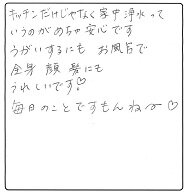 キッチンだけじゃなく家中浄水って
いうのがめちゃ安心です
うがいするにも お風呂で
全身 顔 髪にも
うれしいです♡
毎日のことですもんね〜♡